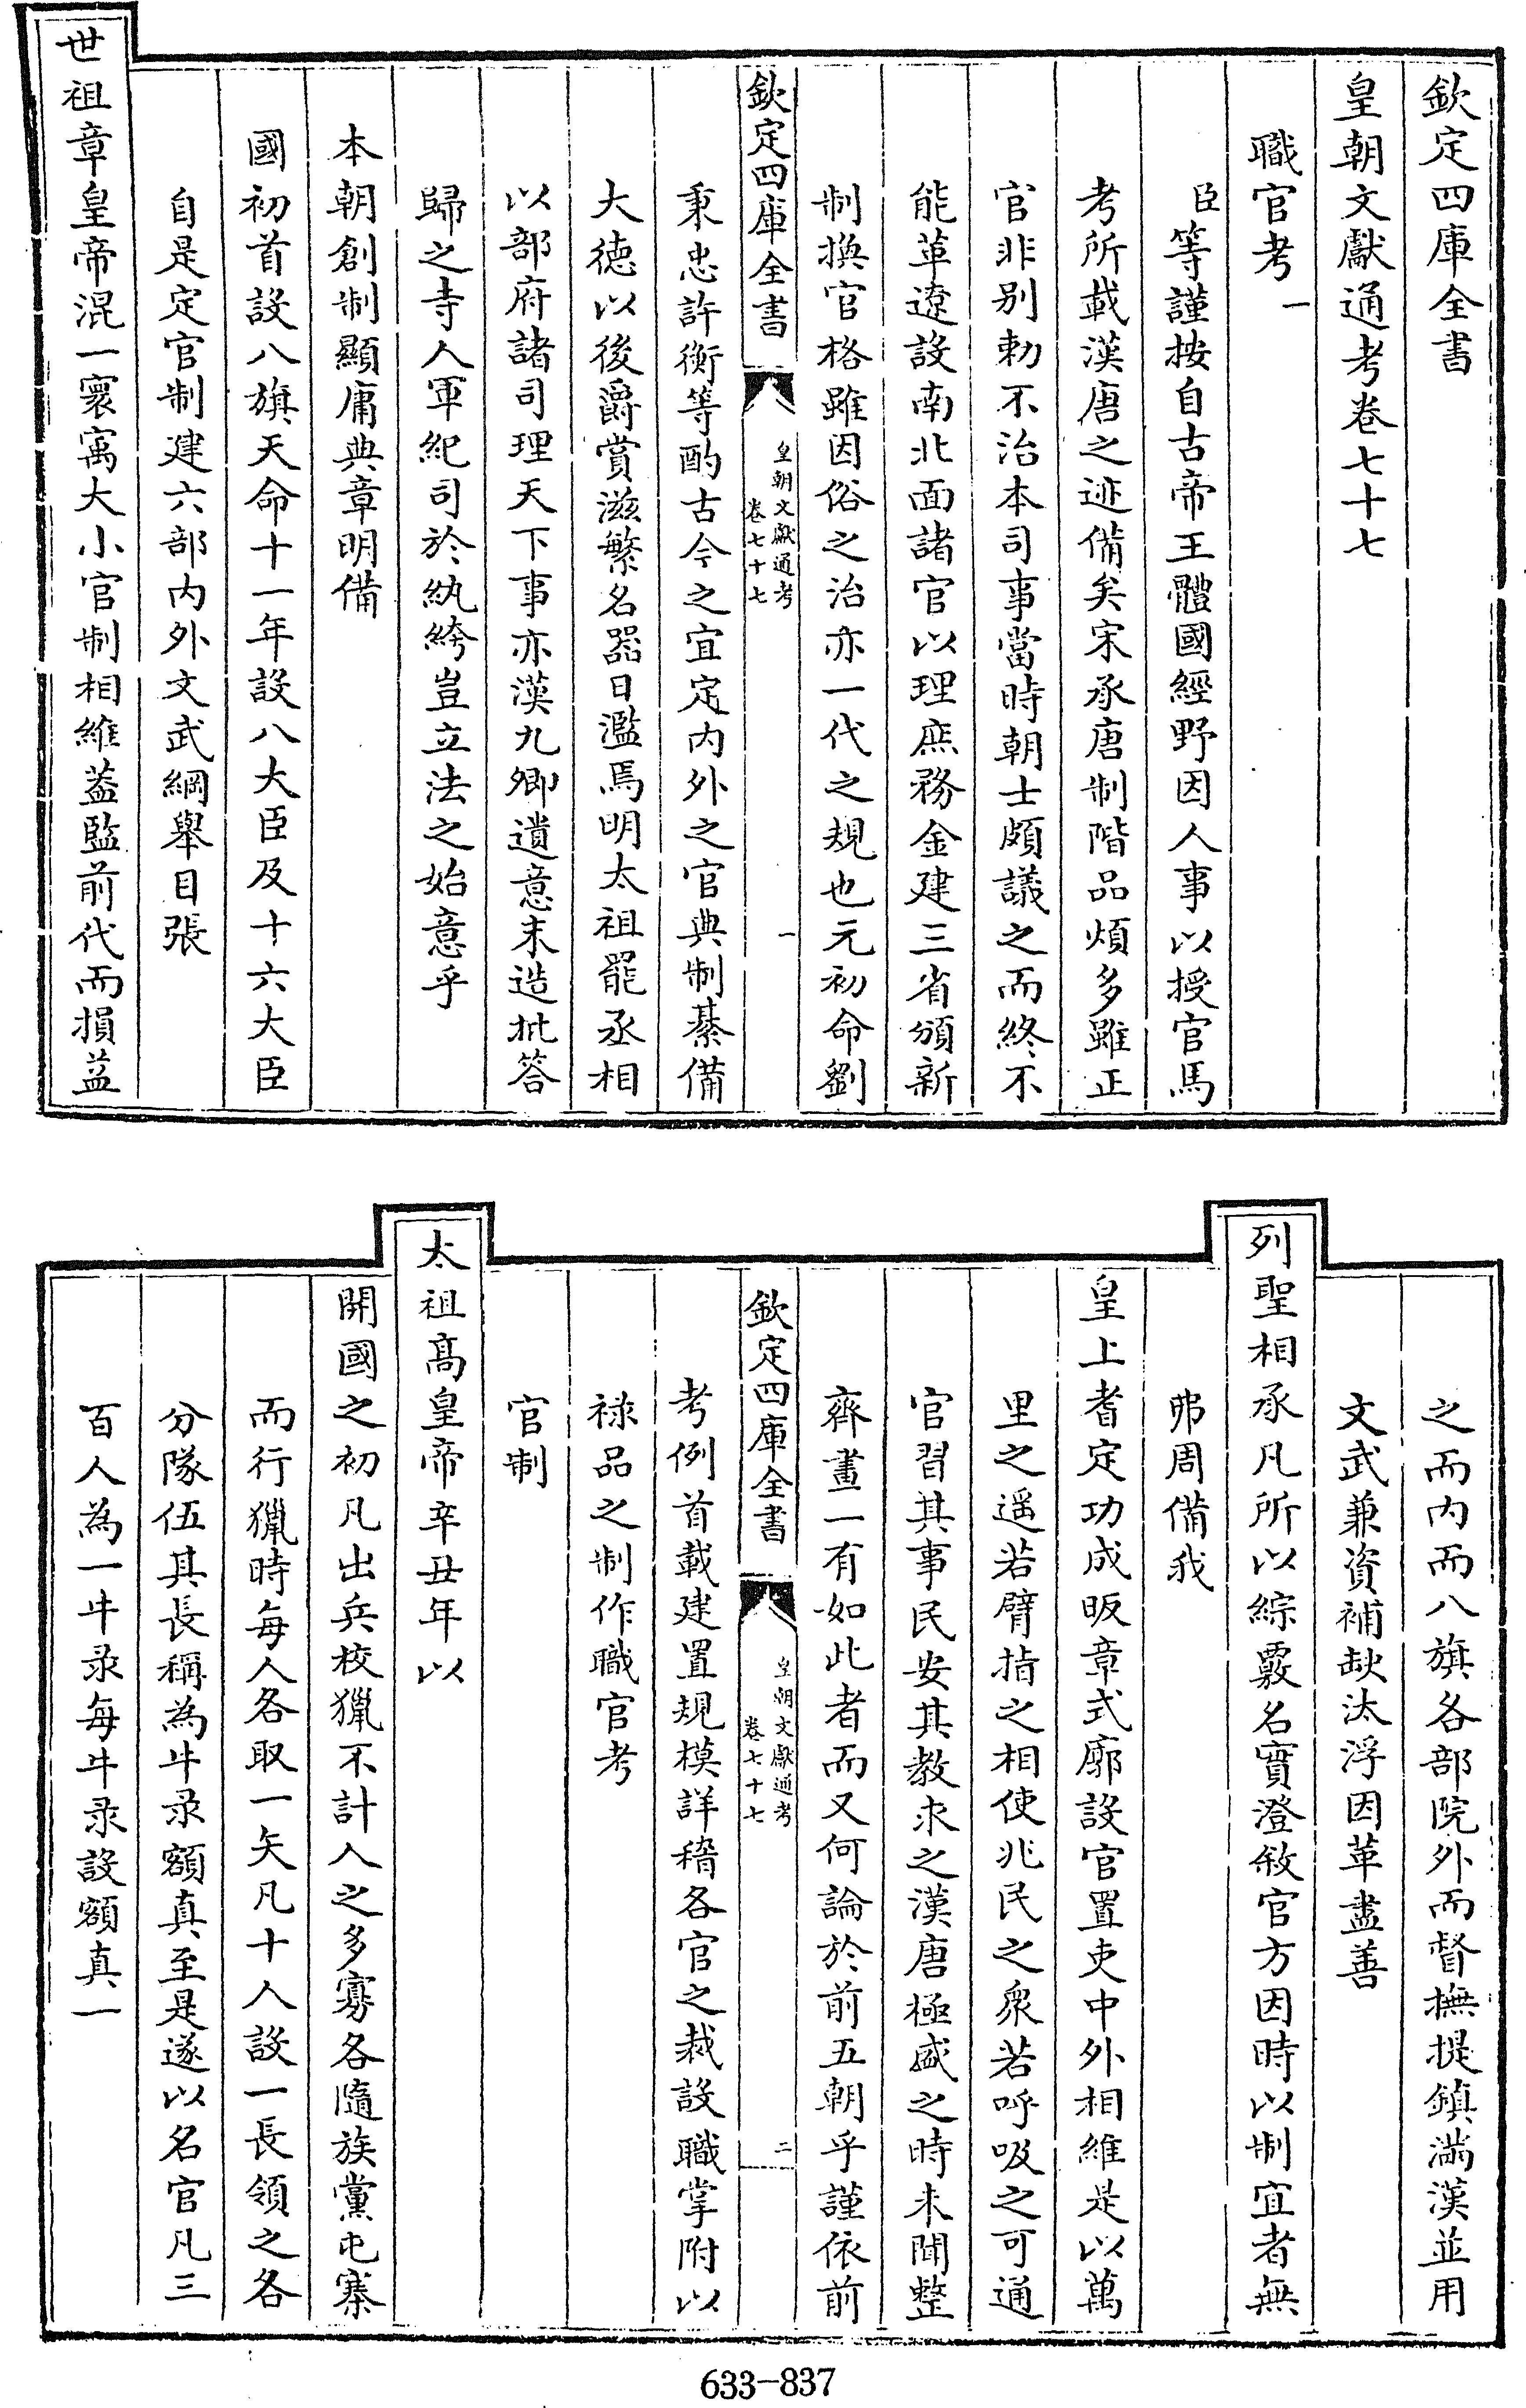 欽定四庫全書
皇朝文獻通考卷七十七
職官考一
臣等謹按自古帝王體國經野因人事以授官馬
考所載漢唐之迹備矣宋承唐制階品煩多雖正
官非别勅不治本司事當時朝士頗議之而終不
能革遼設南北面諸官以理庶務金建三省頒新
制換官格雖因俗之治亦一代之規也元初命劉
欽定四庫全書
皇朝文獻通考
卷七十七
一
秉忠許衡等酌古今之宜定内外之官典制綦備
大徳以後爵賞滋繁名器日濫焉明太祖罷丞相
以部府諸司理天下事亦漢九卿遺意末造批答
歸之寺人軍紀司於紈絝豈立法之始意乎
本朝創制顯庸典章明備
國初首設八旗天命十一年設八大臣及十六大臣
自是定官制建六部内外文武綱舉目張
世祖章皇帝混一寰㝢大小官制相維葢監前代而損益
之而内而八旗各部院外而督撫提鎮滿漢並用
文武兼資補缺汰浮因革盡善
列聖相承凡所以綜覈名實澄敘官方因時以制宜者無
弗周備我
皇上耆定功成昄章式廓設官置吏中外相維是以萬
里之遥若臂指之相使兆民之衆若呼吸之可通
官習其事民安其教求之漢唐極盛之時未聞整
齊畫一有如此者而又何論於前五朝乎謹依前
欽定四庫全書
皇朝文獻通考
卷七十七
二
考例首載建置規模詳稽各官之裁設職掌附以
祿品之制作職官考
官制
太祖髙皇帝辛丑年以
開國之初凡出兵校獵不計人之多寡各隨族黨屯寨
而行獵時每人各取一矢凡十人設一長領之各
分隊伍其長稱為牛录額真至是遂以名官凡三
百人為一牛录每牛录設額真一
633-837